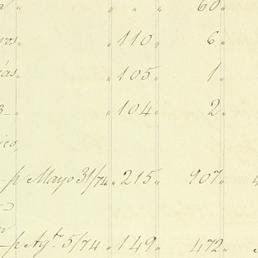 60.
110 6.
105 1.
104 2.
p Mayo 31/74. 215 907.
p Agto 5/74 149 472.